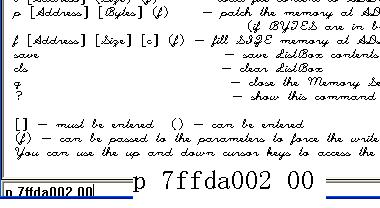 p [Address] [Bytes] (f) - patch the memory at AD
(if BYTES are in
f [Address] [Size] [c] (f) - fill SIZE memory at AD
save - save ListBox contents
cls - clear ListBox
q - close the Memory Se
? - show this command
[] - must be entered () - can be entered
(f) - can be passed to the parameters to force the write
You can use the up and down cursor keys to access the
p 7ffda002 00
p 7ffda002 00